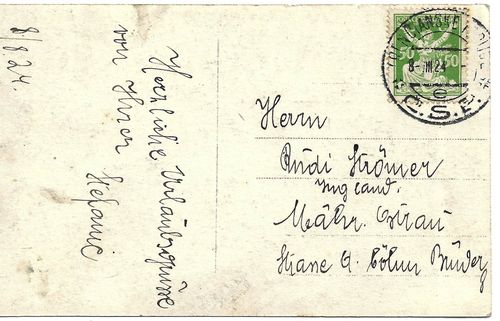 8/8 24.
Herzliche Urlaubsgrüsse
von Ihrer
Stefanie
50 50
8-VIII 24
e
Č.S.P.
Herrn
Rudi Strömer
Mähr. Ostrau
Strasse d. böhm Brüder